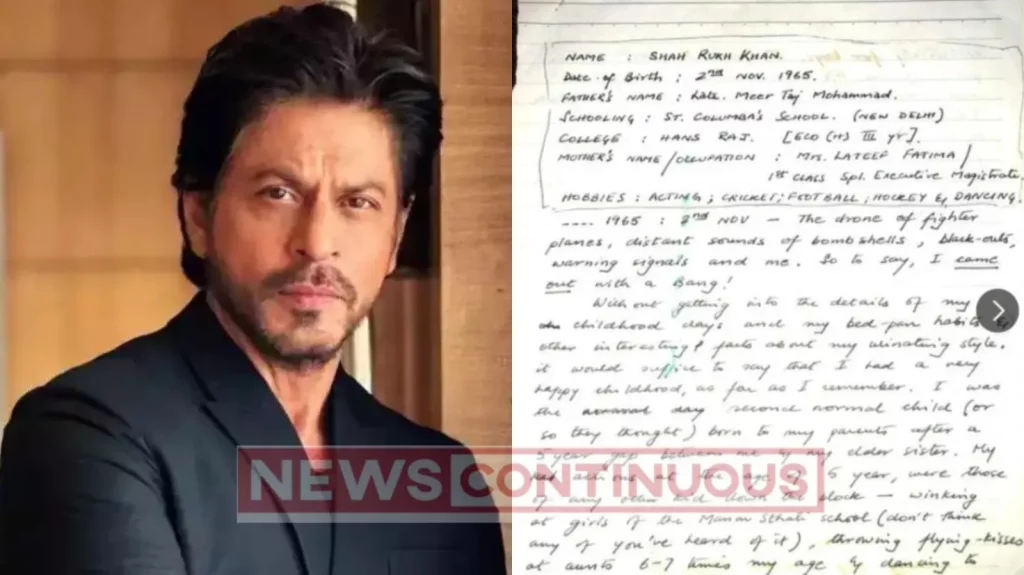 NAME : SHAH RUKH KHAN.
Date of Birth : 2nd NOV. 1965.
FATHER'S NAME : Late. Meer Taj Mohammad.
SCHOOLING : ST. COLUMBA'S SCHOOL. (NEW DELHI)
COLLEGE : HANS RAJ. [ECO (H) III yr].
MOTHER'S NAME/OCCUPATION : MRS. LATEEF FATIMA/
1st CLASS Spl. Executive Magistrate
HOBBIES : ACTING; CRICKET; FOOTBALL; HOCKEY & DANCING.
---- 1965 : 2nd NOV — The drone of fighter
planes, distant sounds of bombshells, black-outs,
warning signals and me. So to say, I came
out with a Bang!
Without getting into the details of my
childhood days and my bed-pan habits &
other interesting facts about my urinating style,
it would suffice to say that I had a very
happy childhood, as far as I remember. I was
the day second normal child (or
so they thought) born to my parents after a
5 year gap between me & my elder sister. My
at the age of 5 year, were those
of any other kid down the block — winking
at girls of the Manav Sthali school (don't think
any of you've heard of it), throwing flying-kisses
at aunts 6-7 times my age & dancing to
NEWS CONTINUOUS